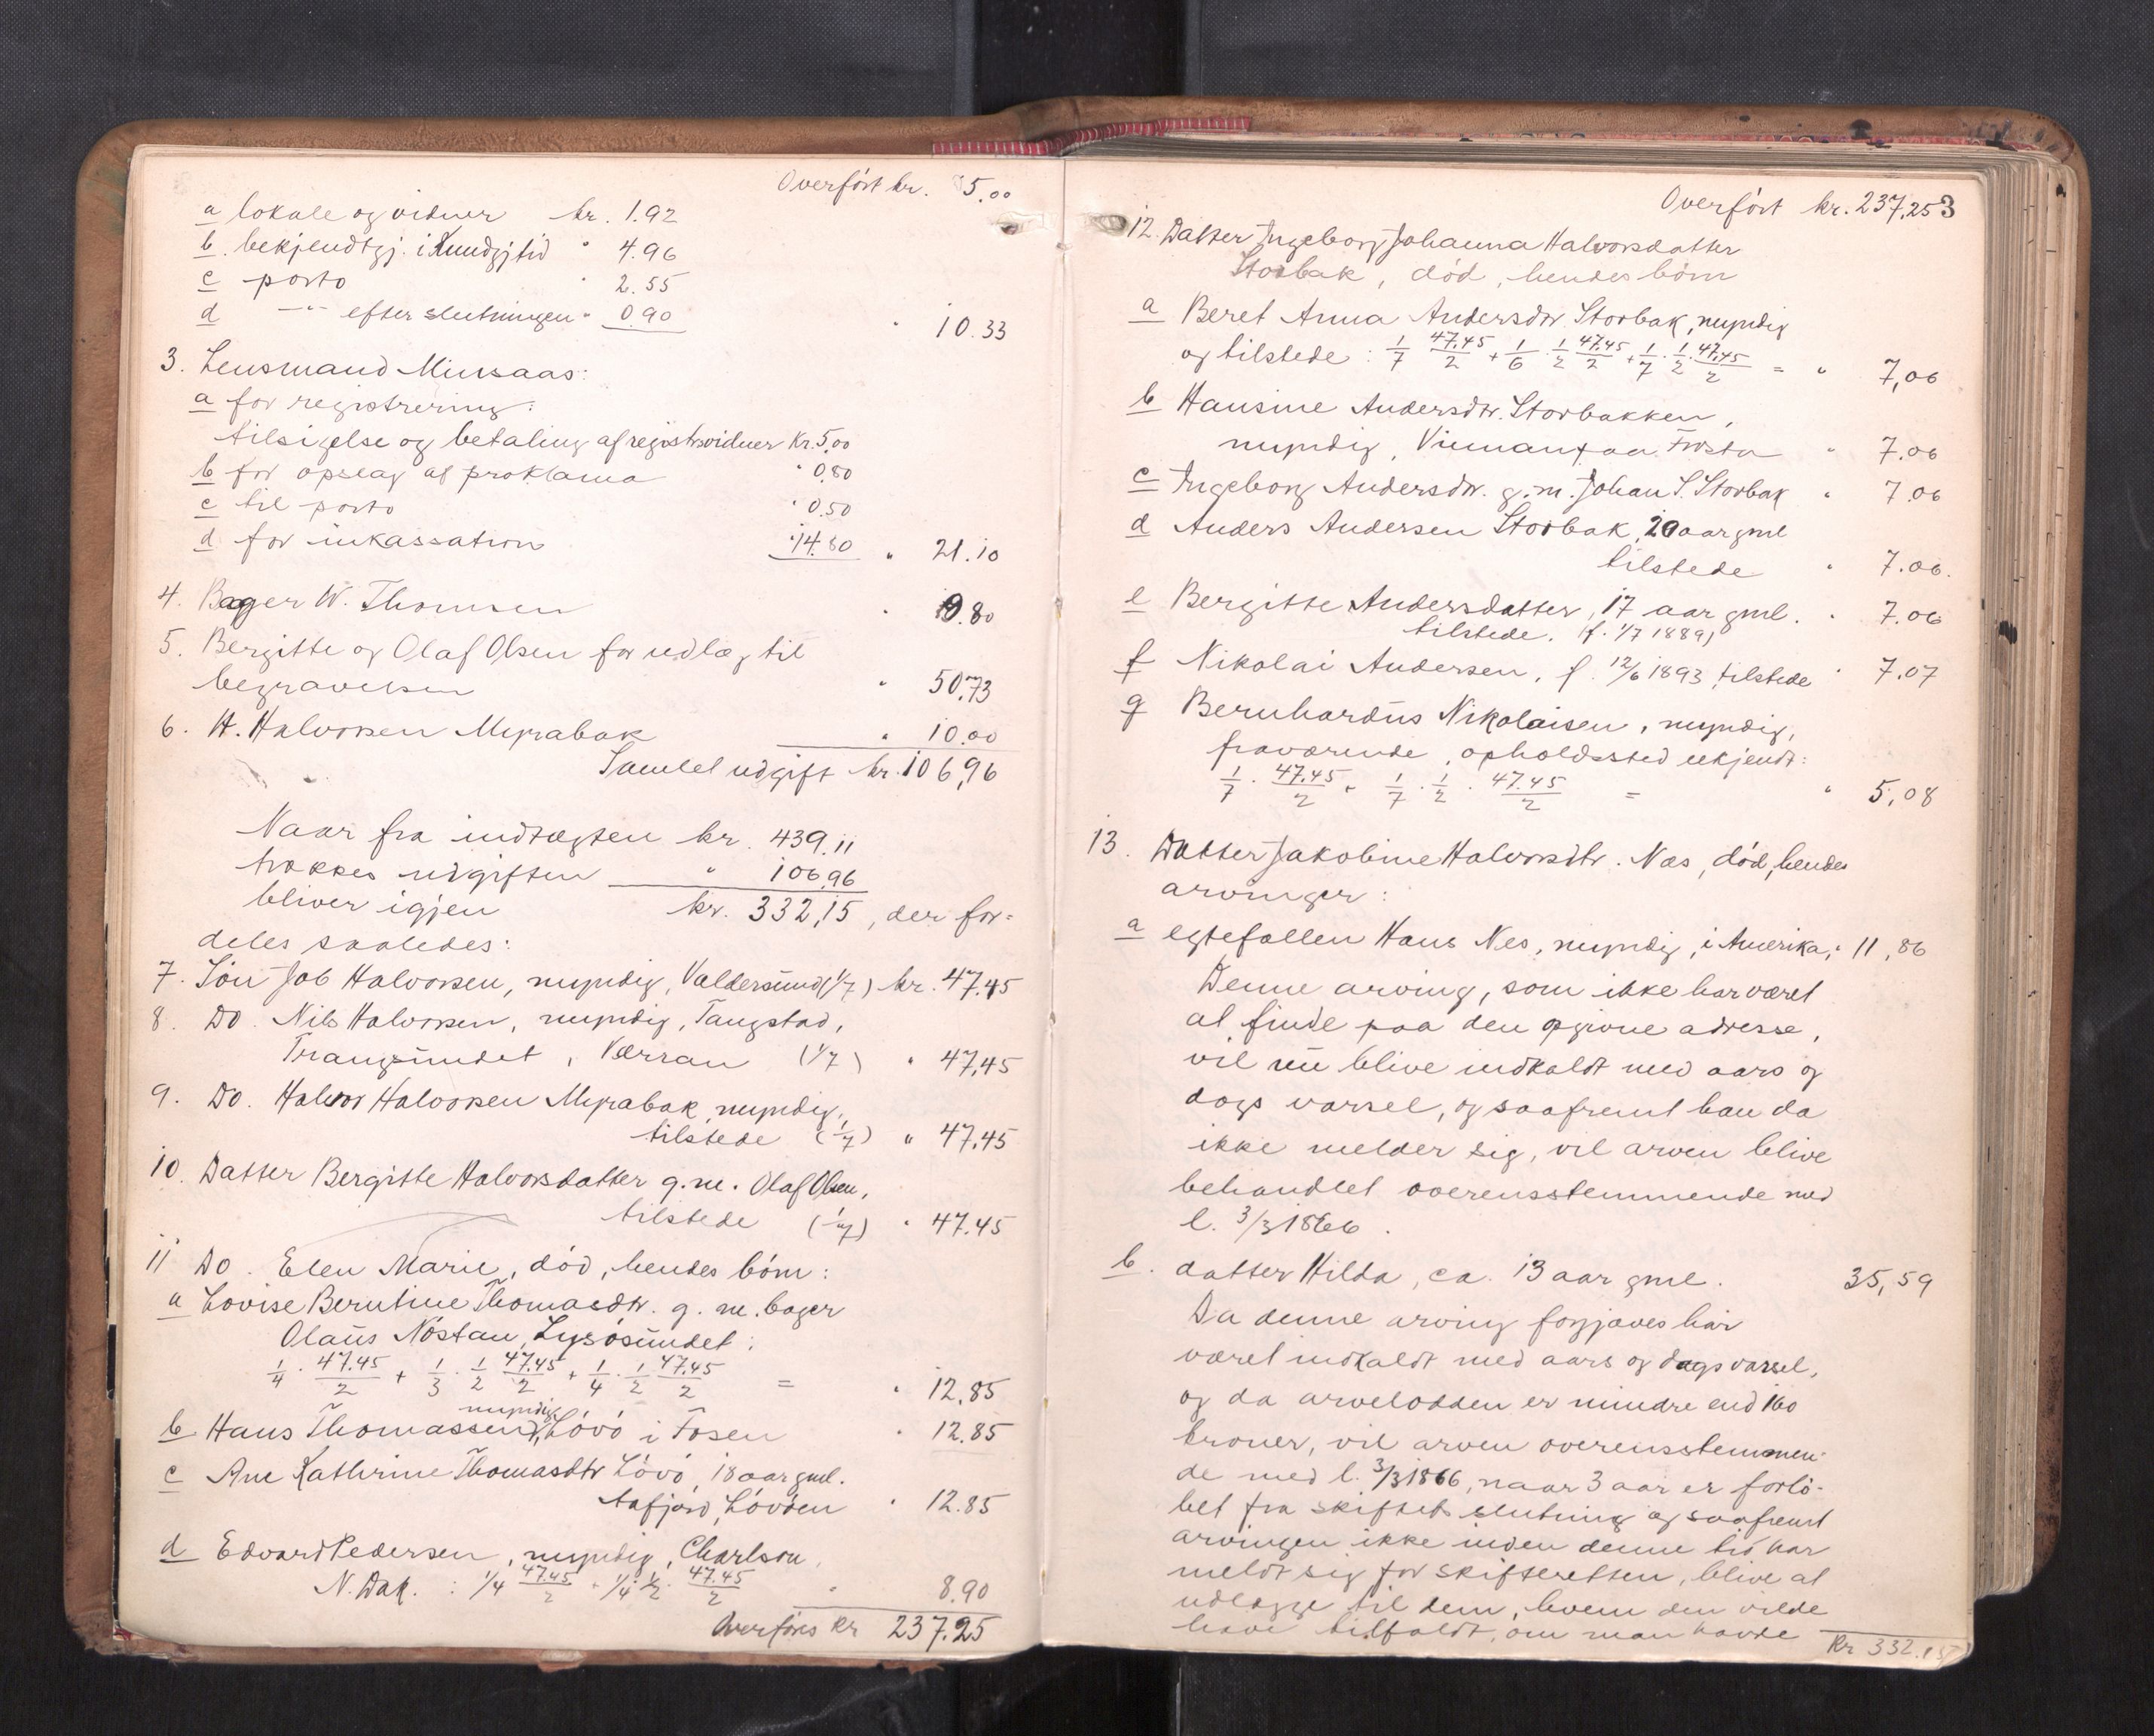 Overført kr. 5.00
a lokale og vidner kr. 1.92
b. bekjendtgj. i Kundgjtid " 4.96
c porto " 2.55
d —"— efter slutningen " 0.90
" 10.33
3. Lensmand Minsaas:
a for registrering:
tilsigelse og betaling af registr.vidner Kr. 5,00
b for opslag af proklama " 0.80
c til porto " 0.50
d for inkassation " 14.80 " 21.10
4. Bager W. Thomsen " 9.80
5. Bergitte og Olaf Olsen for udlæg til
begravelsen " 50,73
6. H. Halvorsen Myrabak " 10.00
Samlet udgift kr. 106,96
Naar fra indtægten kr. 439.11
trækkes udgiften " 106.96
bliver igjen kr. 332,15, der for=
deles saaledes:
7. Søn Job Halvorsen, myndig, Valdersund (1/7) kr. 47.45
8. Do. Nils Halvorsen, myndig, Tangstad,
Trangsundet, Værran (1/7) " 47,45
9. Do. Halvor Halvorsen Myrabak, myndig,
tilstede (1/7) " 47.45
10. Datter Bergitte Halvorsdatter g.m. Olaf Olsen,
tilstede (1/7) " 47.45
11 Do. Elen Marie, død, hendes børn:
a Lovise Berntine Thomasdtr. g.m. bager
Olaus Nøstan, Lysøsundet:
1/4 · 47.45/2 + 1/3 · 1/2 47.45/2 + 1/4 · 1/2 47.45/2 = " 12.85
myndig,
b Hans Thomassen, Løvø i Fosen " 12.85
c Ane Kathrine Thomasdtr Løvø, 18 aar gml.
Aafjord, Løvøen " 12.85
d Edvard Pedersen, myndig, Charlson,
N. Dak. : 1/4 47.45/2 + 1/4 · 1/2 · 47.45/2 " 8.90
Overføres kr 237.25
3
Overført kr. 237.25
12. Datter Ingeborg Johanna Halvorsdatter
Storbak, død, hendes børn
a Beret Anna Andersdtr. Storbak, myndig
og tilstede: 1/7 47.45/2 + 1/6 · 1/2 47.45/2 + 1/7 · 1/2 · 47.45/2 = " 7,06
b Hansine Andersdtr. Storbakken,
myndig, Vinnan paa Frosta " 7.06
c Ingeborg Andersdtr. g.m. Johan S. Storbak " 7.06
d Anders Andersen Storbak, 20 aar gml
tilstede " 7.06.
e Bergitte Andersdatter, 17 aar gml. " 7.06
tilstede. (f. 1/7 1889)
f Nikolai Andersen, f. 12/6 1893, tilstede " 7.07
g Bernhardus Nikolaisen, myndig,
fraværende, opholdssted ukjendt:
1/7 · 47.45/2 + 1/7 · 1/2 · 47.45/2 = " 5,08
13. Datter Jakobine Halvorsdtr. Næs, død, hendes
arvinger:
a egtefællen Hans Nes, myndig, i Amerika, " 11,86
Denne arving, som ikke har været
at finde paa den opgivne adresse,
vil nu blive indkaldt med aars og
dags varsel, og saafremt han da
ikke melder sig, vil arven blive
behandlet overensstemmende med
l. 3/3 1866.
b. datter Hilda, ca. 13 aar gml. 35,59
Da denne arving forgjæves har
været indkaldt med aars og dags varsel,
og da arvelodden er mindre end 160
kroner, vil arven overensstemmen-
de med l. 3/3 1866, naar 3 aar er forlø-
bet fra skiftets slutning og saafremt
arvingen ikke inden denne tid har
meldt sig for skifteretten, blive at
udlægge til dem, hvem den vilde
have tilfaldt, om man havde Kr 332.15